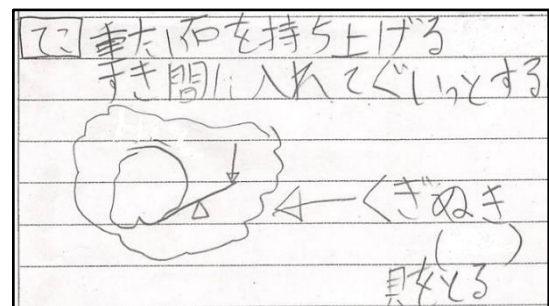 てこ 重たい石を持ち上げる
すき間に入れてぐいっとする
くぎぬき
( )
貝をとる